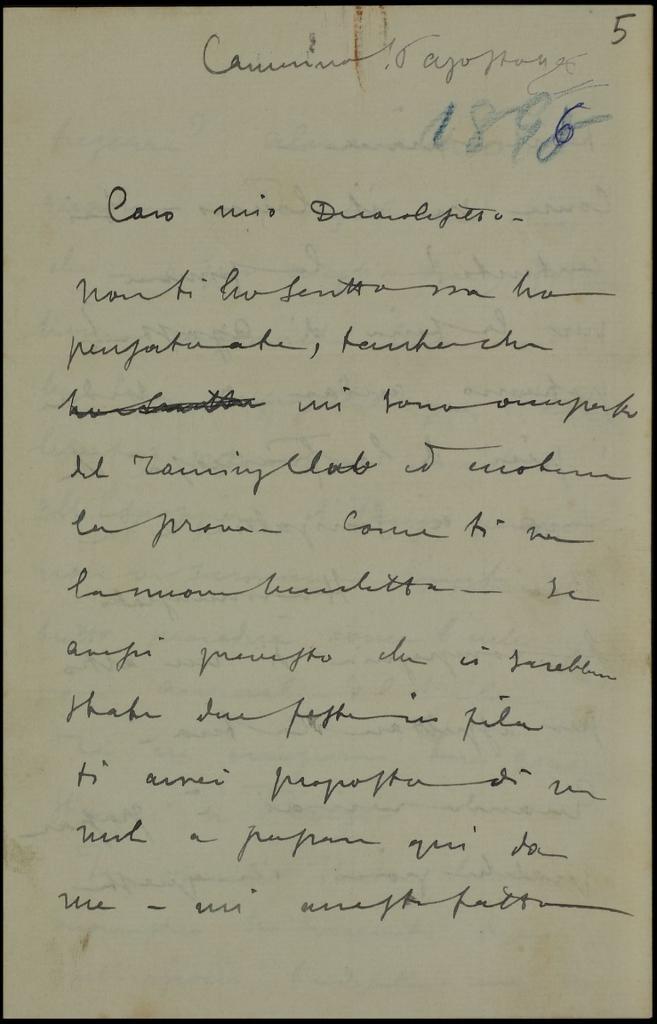 5
Camerino 15 agosto 95
1896
Caro mio
non ti ho scritto ma ho
pensato a te, tant'è che
ho scritto mi sono occupato
del Club ed
la prova - Come ti va
la nuova - Se
avessi previsto che ci sarebbero
state due feste in fila
ti avrei proposto di
a passare qui da
me - mi avresti fatto